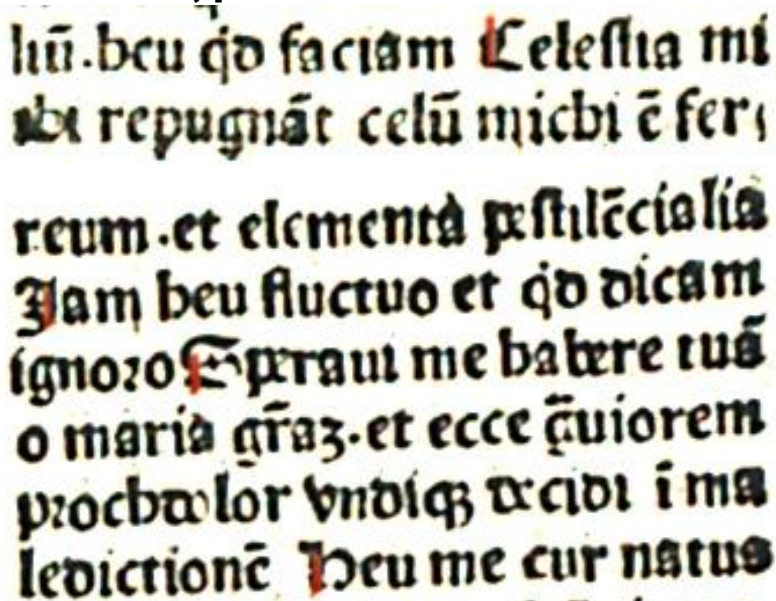 liū. heu qd faciam Celeſtia mi
ihi repugnāt celū michi ē fer
reum. et elementa peſtilēcialia
Jam heu fluctuo et qd dicam
ignoꝛo Speraui me habere tuā
o maria grāꝫ. et ecce guiorem
pꝛochdolor vndiqꝫ decidi ī ma
ledictionē Heu me cur natus